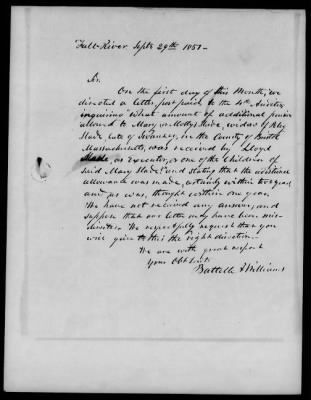 Fall River Septr 29th 1851-
Sir.
On the first day of this Month, we
directed a letter, post paid to the 4th Auditor
inquiring "What amount of additional pension
allowed to Mary or Molly Slade, widow of
Slade, late of Swansey, in the County of Bristol
Massachusetts, was received by Lloyd
Slade, as Executor, or one of the Children of
said Mary Slade," and stating that the additional
allowance was made, certainly within two years,
and as was, thought within one year.
We have not received any answer, and
suppose that our letter may have been mis-
directed. We respectfully request that you
will give to this the right direction.
We are with great respect
Your Obt Servts
Battelle & Williams